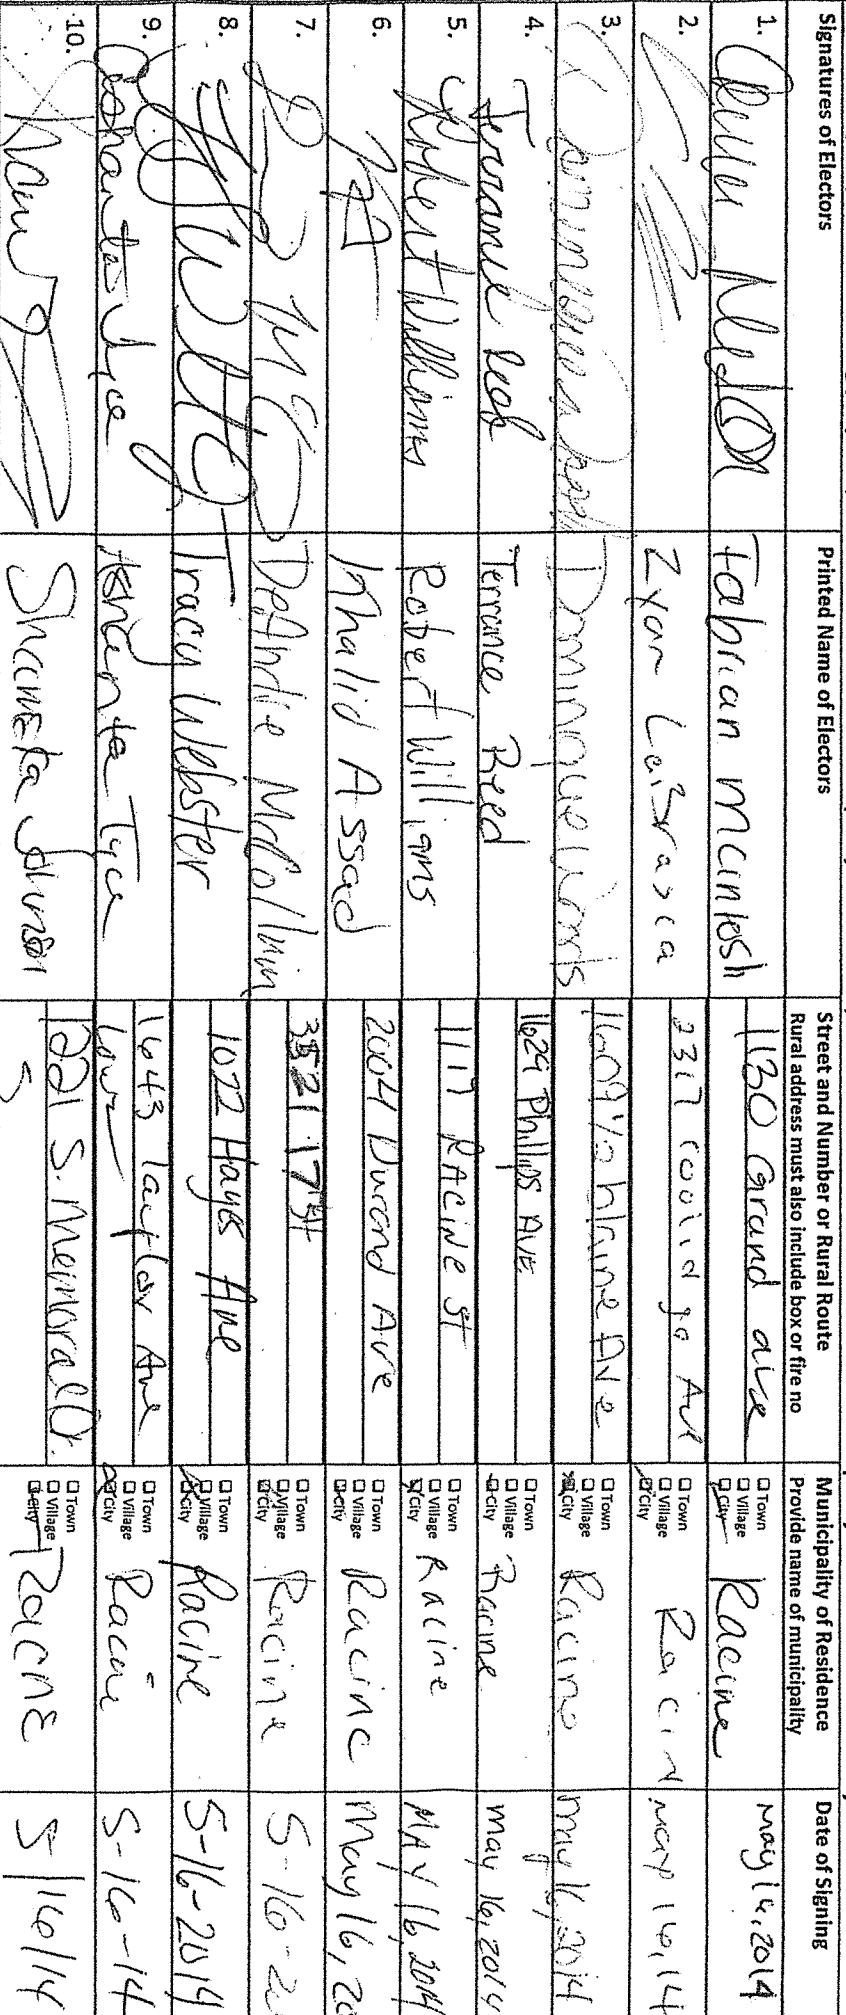 Signatures of Electors
Printed Name of Electors
Street and Number or Rural Route
Rural address must also include box or fire no
Municipality of Residence
Provide name of municipality
Date of Signing
1.
Fabrian McIntosh
1130 Grand ave
□ Town
□ Village
□ City
Racine
may 16, 2014
2.
Zyon LaBrasca
2317 Coolidge Ave
□ Town
□ Village
□ City
Racin
may 16, 14
3.
Dominque
1609 1/2 blaine Ave
□ Town
□ Village
□ City
Racine
may 16, 2014
4. Terrance Reed
Terrance Reed
1629 Phillips AVE
□ Town
□ Village
□ City
Racine
may 16, 2014
5. Robert Williams
Robert Williams
1117 RACINE ST
□ Town
□ Village
□ City
Racine
MAY 16, 2014
6.
Khalid Assad
2004 Durand Ave
□ Town
□ Village
□ City
Racine
May 16, 20
7.
DeAndre
3521 17 St
□ Town
□ Village
□ City
Racine
5-16-2
8.
Tracy Webster
1022 Hayes Ave
□ Town
□ Village
□ City
Racine
5-16-2014
9. Ashanta Tyce
Ashanta Tyce
1643 Ave
□ Town
□ Village
□ City
Racine
5-16-14
10.
Shameka Johnson
1221 S. Memorial Dr.
□ Town
□ Village
□ City
Racine
5/16/14